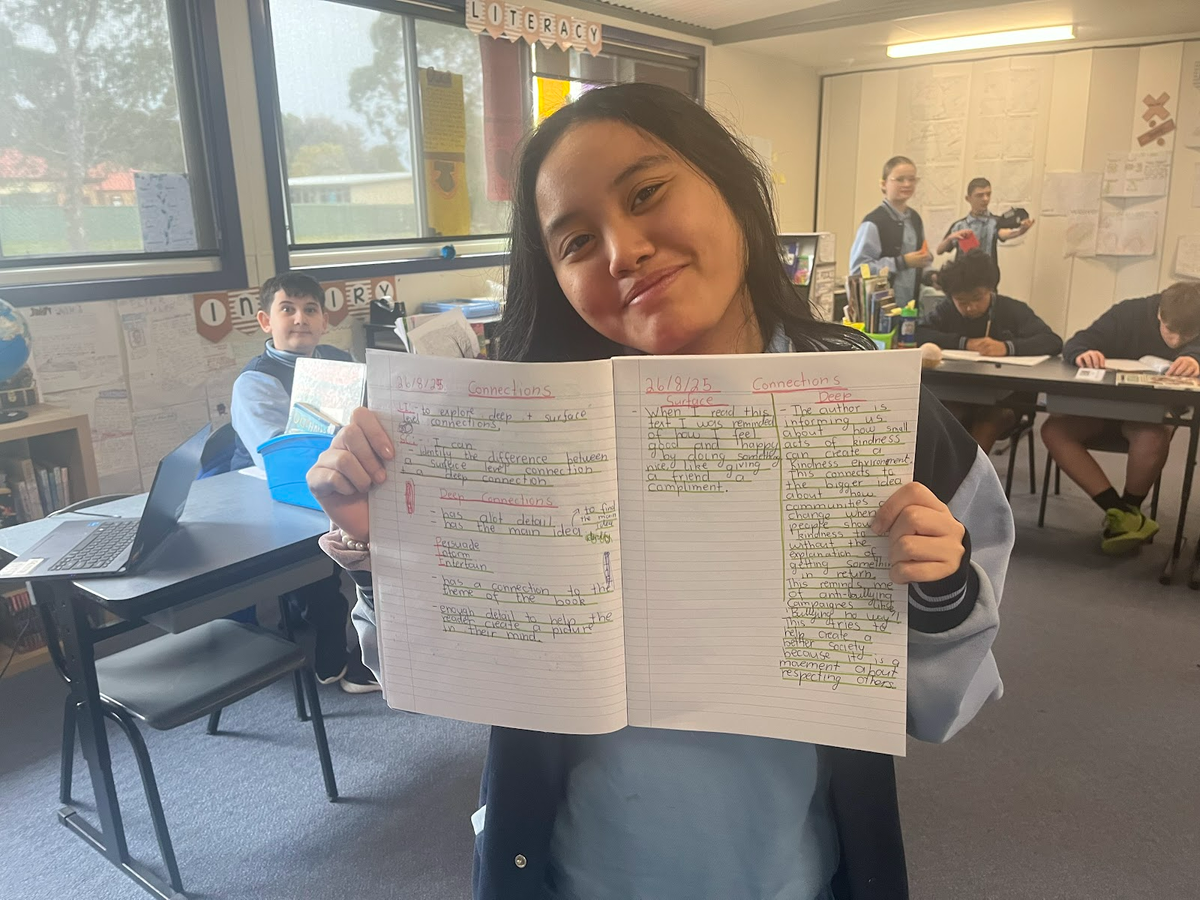 LITERACY
INQUIRY
26/8/25 Connections
to explore deep + surface
level connections.
I can
- identify the difference between
a surface level connection
deep connection
Deep Connections
- has alot detail
has the main idea
to find
the main
idea
Persuade
Inform
Intertain
- has a connection to the
theme of the book
- enough detail to help the
reader create a picture
in their mind.
26/8/25 Connections
Surface
- When I read this
text I was reminded
of how I feel
good and happy
by doing something
nice, like giving
a friend a
compliment.
Deep
- The author is
informing us
about how small
acts of kindness
can create a
kindness environment.
This connects to
the bigger idea
about how
communities
change when
people show
kindness to
without the
explanation of
getting something
in return.
This reminds me
of anti-bullying
campaignes like
"Bullying no way"!
This tries to
help create a
better society
because it is a
movement about
respecting others.